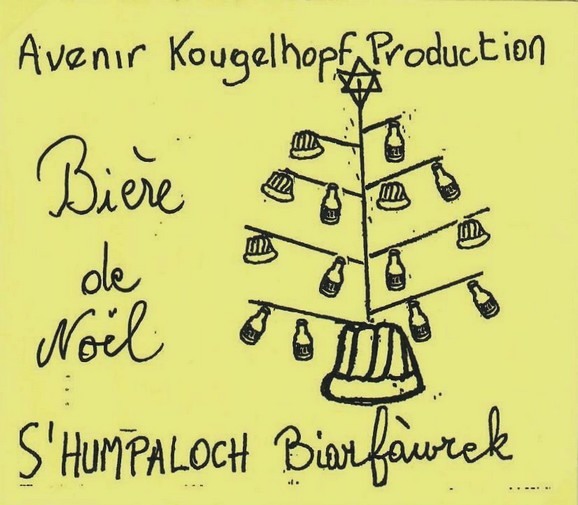 Avenir Kougelhopf Production
Bière
de
Noël
S'HUMPALOCH Biarfàwrek